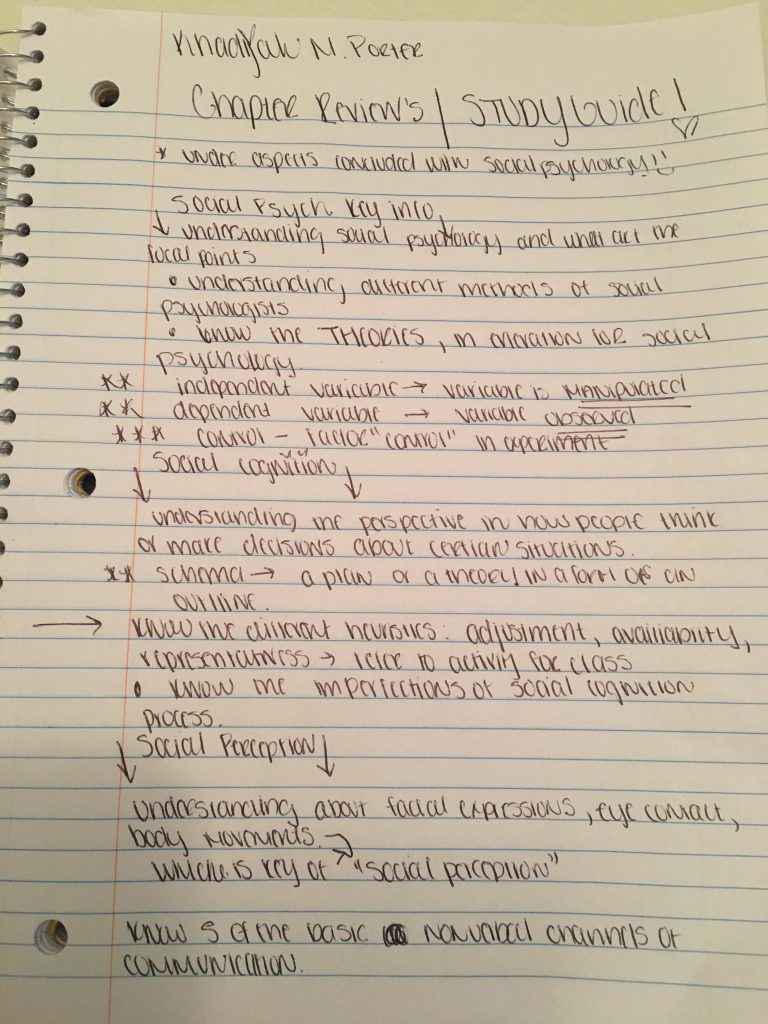 N. Porter
Chapter Review's / STUDY Guide!
* aspects concluded with social psychology!!
Social Psych Key info,
↓ understanding social psychology and what are the
focal points
• understanding different methods of social
psychologists
• know the THEORIES, in for social
psychology
** independent variable → variable is MANIPULATED
** dependent variable → variable observed
*** control - factor "control" in experiment
Social cognition
↓ ↓
understanding the perspective in how people think
or make decisions about certian situations.
** schema → a plan or a theory in a form of an
outline.
→ know the different heuristics: adjustment, availiability,
representativness → refer to activity for class
• know the imperfections of social cognition
process.
↓ Social Perception ↓
understanding about facial expressions, eye contact,
body movements. →
which is key of → "social perception"
know 5 of the basic nonverbal channels of
communication.